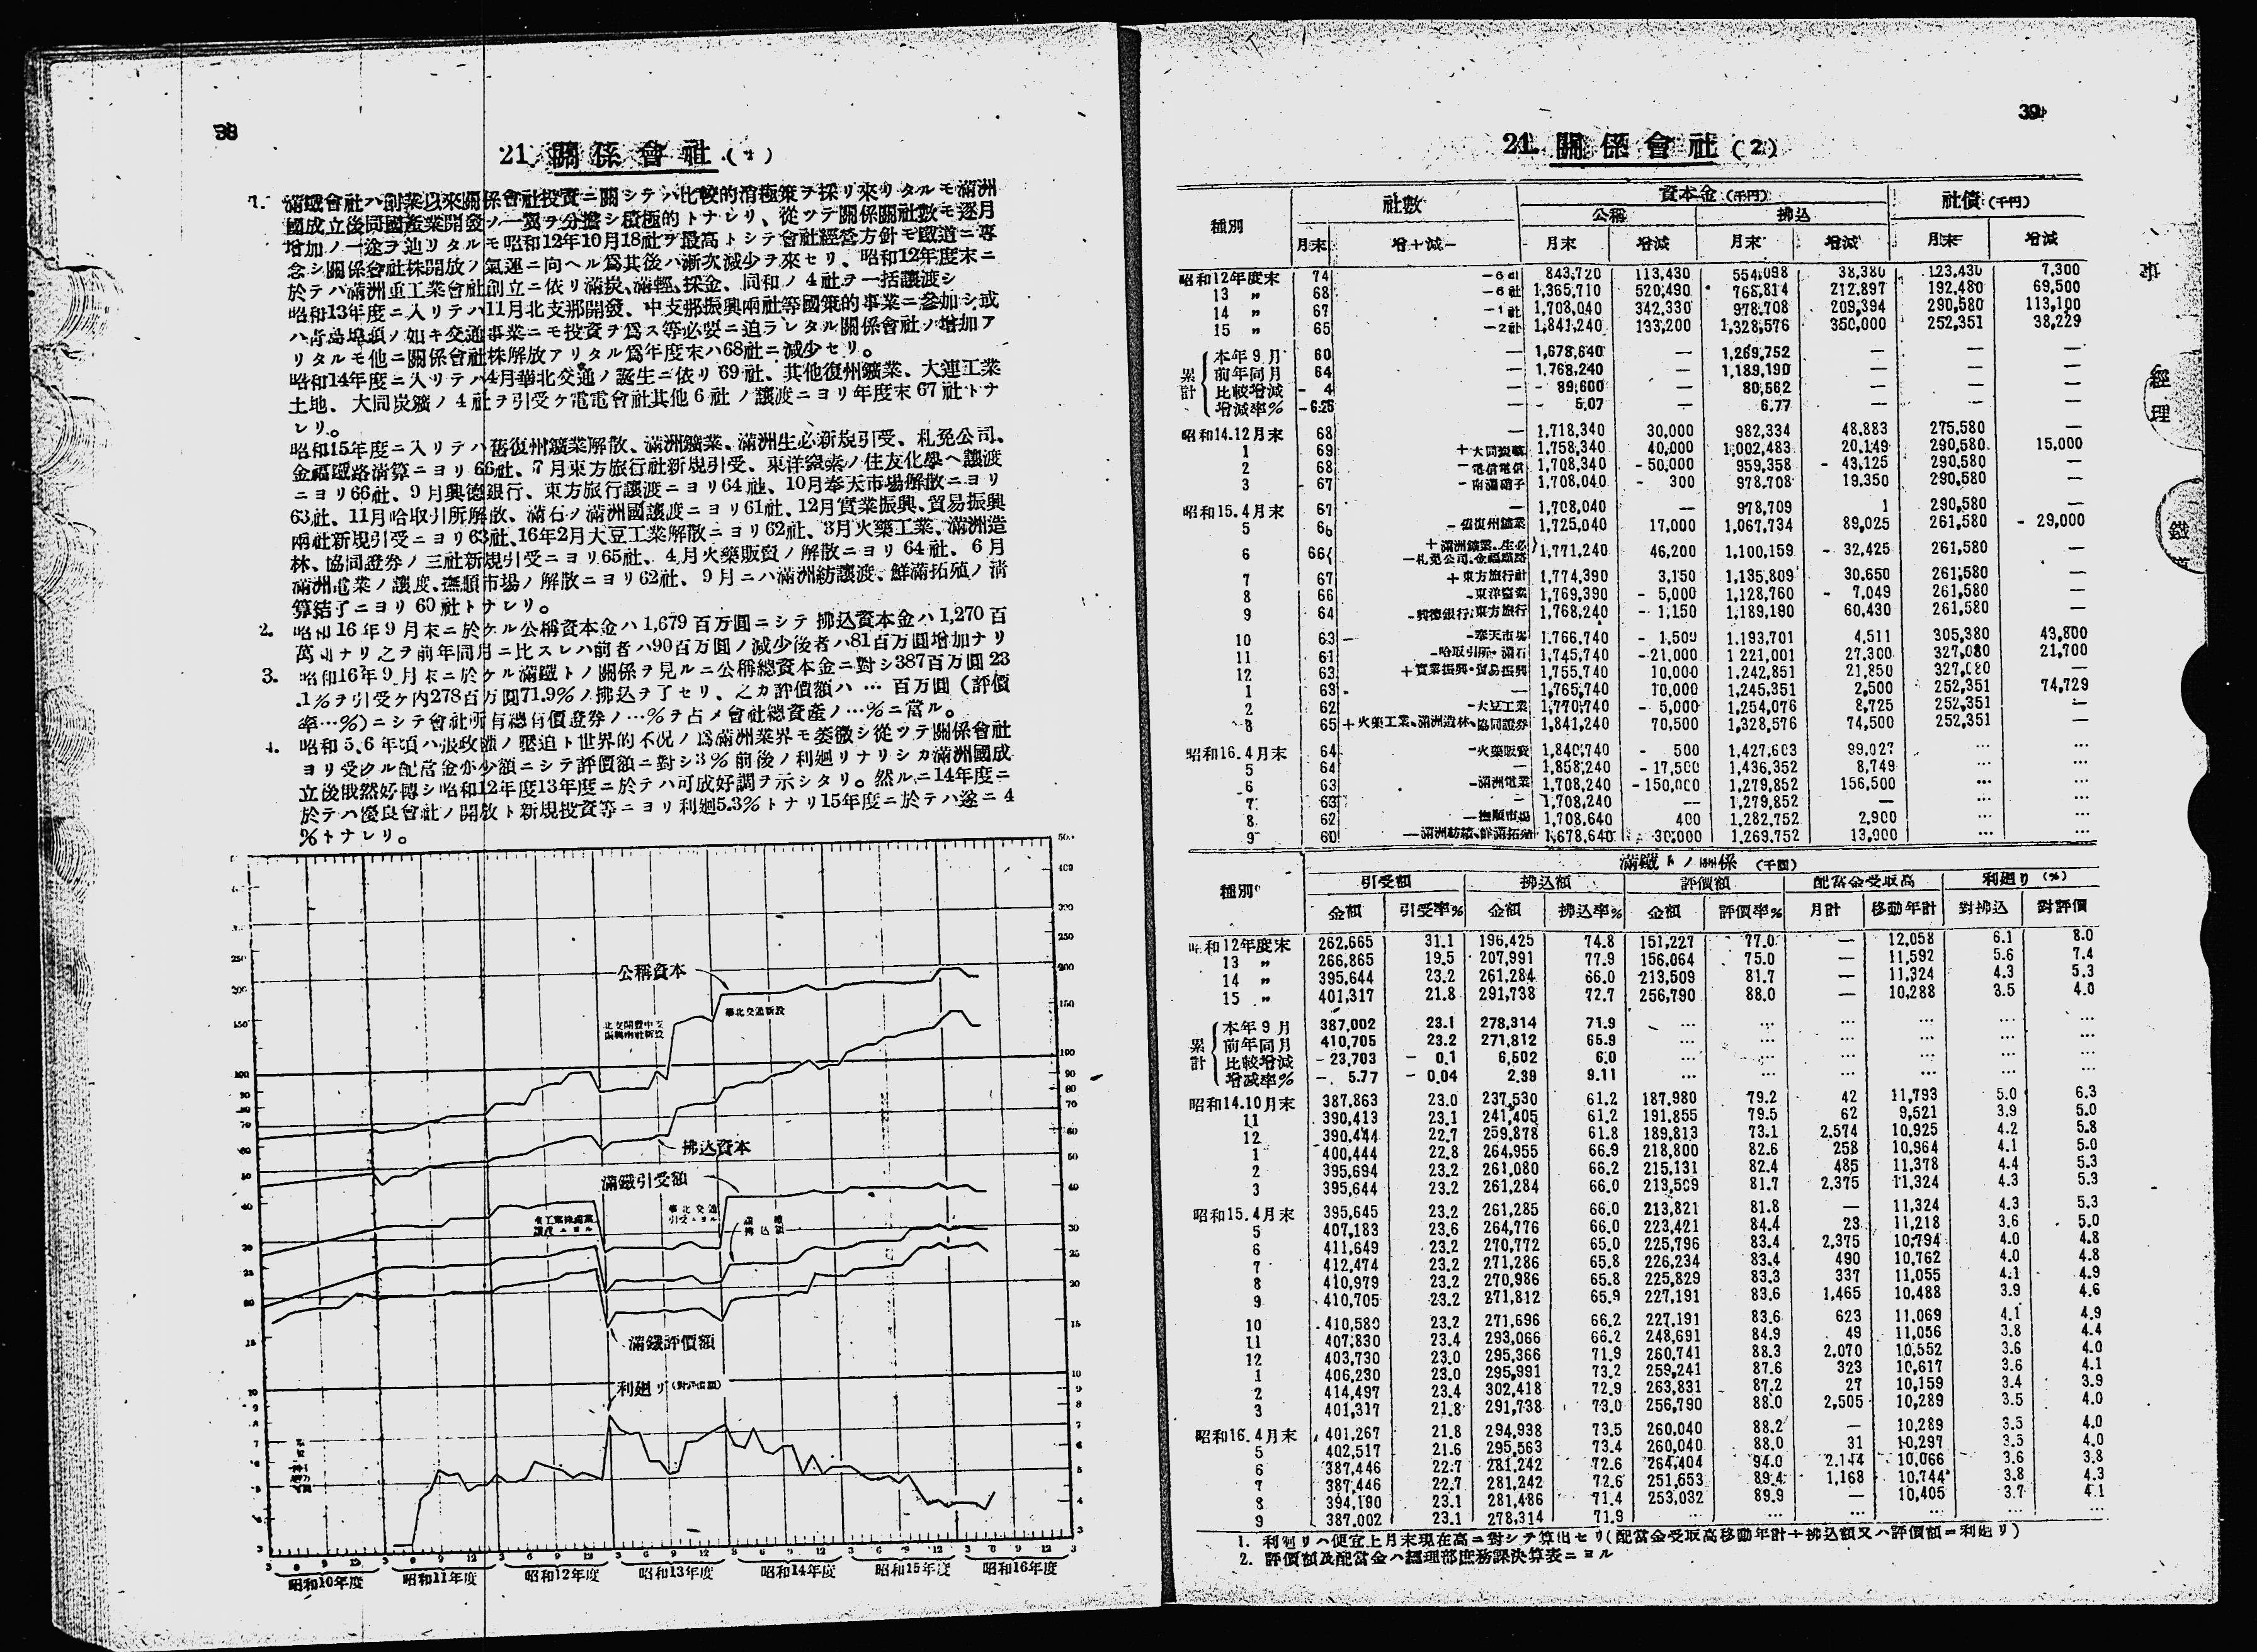 38
21. 關係會社 (1)
1. 滿鐵會社ハ創業以來關係會社投資ニ關シテハ比較的消極策ヲ採リ來リタルモ滿洲
國成立後同國產業開發ノ一翼ヲ分擔シ積極的トナレリ、從ツテ關係關社數モ逐月
增加ノ一途ヲ辿リタルモ昭和12年10月18社ヲ最高トシテ會社經營方針モ鐵道ニ專
念シ關係會社株開放ノ氣運ニ向ヘル爲其後ハ漸次減少ヲ來セリ、昭和12年度末ニ
於テハ滿洲重工業會社創立ニ依リ滿炭、滿輕、採金、同和ノ4社ヲ一括讓渡シ
昭和13年度ニ入リテハ11月北支那開發、中支那振興兩社等國策的事業ニ參加シ或
ハ靑島埠頭ノ如キ交通事業ニモ投資ヲ爲ス等必要ニ迫ラレタル關係會社ノ增加ア
リタルモ他ニ關係會社株解放アリタル爲年度末ハ68社ニ減少セリ。
昭和14年度ニ入リテハ4月華北交通ノ誕生ニ依リ69社、其他復州鑛業、大連工業
土地、大同炭鑛ノ4社ヲ引受ケ電電會社其他6社ノ讓渡ニヨリ年度末67社トナ
レリ。
昭和15年度ニ入リテハ舊復州鑛業解散、滿洲鑛業、滿洲生必新規引受、札免公司、
金福鐵路淸算ニヨリ66社、7月東方旅行社新規引受、東洋窒素ノ住友化學ヘ讓渡
ニヨリ66社、9月興德銀行、東方旅行讓渡ニヨリ64社、10月奉天市場解散ニヨリ
63社、11月哈取引所解散、滿石ノ滿洲國讓渡ニヨリ61社、12月實業振興、貿易振興
兩社新規引受ニヨリ63社、16年2月大豆工業解散ニヨリ62社、3月火藥工業、滿洲造
林、協同證券ノ三社新規引受ニヨリ65社、4月火藥販賣ノ解散ニヨリ64社、6月
滿洲電業ノ讓渡、撫順市場ノ解散ニヨリ62社、9月ニハ滿洲紡讓渡、鮮滿拓殖ノ淸
算結了ニヨリ60社トナレリ。
2. 昭和16年9月末ニ於ケル公稱資本金ハ1,679百万圓ニシテ拂込資本金ハ1,270百
萬圓ナリ之ヲ前年同月ニ比スレハ前者ハ90百万圓ノ減少後者ハ81百万圓增加ナリ
3. 昭和16年9月末ニ於ケル滿鐵トノ關係ヲ見ルニ公稱總資本金ニ對シ387百万圓23
.1%ヲ引受ケ內278百万圓71.9%ノ拂込ヲ了セリ、之カ評價額ハ…百万圓(評價
率…%)ニシテ會社所有總有價證券ノ…%ヲ占メ會社總資產ノ…%ニ當ル。
4. 昭和5.6年頃ハ張政權ノ壓迫ト世界的不況ノ爲滿洲業界モ萎微シ從ツテ關係會社
ヨリ受クル配當金亦少額ニシテ評價額ニ對シ3%前後ノ利廻リナリシカ滿洲國成
立後俄然好轉シ昭和12年度13年度ニ於テハ可成好調ヲ示シタリ。然ルニ14年度ニ
於テハ優良會社ノ開放ト新規投資等ニヨリ利廻5.3%トナリ15年度ニ於テハ遂ニ4
%トナレリ。
公稱資本
北支開發中支
振興兩社新設
華北交通新設
拂込資本
滿鐵引受額
重工業株讓渡
讓渡ニヨル
華北交通
引受ニヨル
滿鐵評價額
利廻リ(對評價額)
昭和10年度 昭和11年度 昭和12年度 昭和13年度 昭和14年度 昭和15年度 昭和16年度
39
21. 關係會社 (2)
種別 社數 資本金(千円) 社債(千円)
公稱 拂込
月末 增+減- 月末 增減 月末 增減 月末 增減
昭和12年度末 74 -6社 843,720 113,430 554,098 38,380 123,430 7,300
13 〃 68 -6社 1,365,710 520,490 768,814 212,897 192,480 69,500
14 〃 67 -1社 1,708,040 342,330 978,708 209,394 290,580 113,100
15 〃 65 -2社 1,841,240 133,200 1,328,576 350,000 252,351 38,229
累計
本年9月 60 — 1,678,640 — 1,269,752 — — —
前年同月 64 — 1,768,240 — 1,189,190 — — —
比較增減 - 4 — - 89,600 — 80,562 — — —
增減率% -6.25 — - 5.07 — 6.77 — — —
昭和14.12月末 68 — 1,718,340 30,000 982,334 48,883 275,580 —
1 69 +大同炭鑛 1,758,340 40,000 1,002,483 20,149 290,580 15,000
2 68 -電信電信 1,708,340 - 50,000 959,358 - 43,125 290,580 —
3 67 -南滿硝子 1,708,040 - 300 978,708 19,350 290,580 —
昭和15.4月末 67 — 1,708,040 — 978,709 1 290,580 —
5 66 -舊復州鑛業 1,725,040 17,000 1,067,734 89,025 261,580 - 29,000
6 66 +滿洲鑛業、生必 -札免公司、金福鐵路 1,771,240 46,200 1,100,159 - 32,425 261,580 —
7 67 +東方旅行社 1,774,390 3,150 1,135,809 30,650 261,580 —
8 66 -東洋窒素 1,769,390 - 5,000 1,128,760 - 7,049 261,580 —
9 64 -興德銀行、東方旅行 1,768,240 - 1,150 1,189,190 60,430 261,580 —
10 63 -奉天市場 1,766,740 - 1,500 1,193,701 4,511 305,380 43,800
11 61 -哈取引所・滿石 1,745,740 -21,000 1,221,001 27,300 327,080 21,700
12 63 +實業振興・貿易振興 1,755,740 10,000 1,242,851 21,850 327,080 —
1 63 — 1,765,740 10,000 1,245,351 2,500 252,351 74,729
2 62 -大豆工業 1,770,740 - 5,000 1,254,076 8,725 252,351 —
3 65 +火藥工業、滿洲造林、協同證券 1,841,240 70,500 1,328,576 74,500 252,351 —
昭和16.4月末 64 -火藥販賣 1,840,740 - 500 1,427,603 99,027 … …
5 64 — 1,858,240 - 17,500 1,436,352 8,749 … …
6 63 -滿洲電業 1,708,240 -150,000 1,279,852 156,500 … …
7 63 - 1,708,240 — 1,279,852 — … …
8 62 -撫順市場 1,708,640 400 1,282,752 2,900 … …
9 60 -滿洲紡績、鮮滿拓殖 1,678,640 30,000 1,269,752 13,000 … …
種別 滿鐵トノ關係 (千圓)
引受額 拂込額 評價額 配當金受取高 利廻リ(%)
金額 引受率% 金額 拂込率% 金額 評價率% 月計 移動年計 對拂込 對評價
昭和12年度末 262,665 31.1 196,425 74.8 151,227 77.0 — 12,058 6.1 8.0
13 〃 266,865 19.5 207,991 77.9 156,064 75.0 — 11,592 5.6 7.4
14 〃 395,644 23.2 261,284 66.0 213,509 81.7 — 11,324 4.3 5.3
15 〃 401,317 21.8 291,738 72.7 256,790 88.0 — 10,288 3.5 4.0
累計
本年9月 387,002 23.1 278,314 71.9 … … … … … …
前年同月 410,705 23.2 271,812 65.9 … … … … … …
比較增減 - 23,703 - 0.1 6,502 6.0 … … … … … …
增減率% - 5.77 - 0.04 2.39 9.11 … … … … … …
昭和14.10月末 387,863 23.0 237,530 61.2 187,980 79.2 42 11,793 5.0 6.3
11 390,413 23.1 241,405 61.2 191,855 79.5 62 9,521 3.9 5.0
12 390,444 22.7 259,878 61.8 189,813 73.1 2,574 10,925 4.2 5.8
1 400,444 22.8 264,955 66.9 218,800 82.6 258 10,964 4.1 5.0
2 395,694 23.2 261,080 66.2 215,131 82.4 485 11,378 4.4 5.3
3 395,644 23.2 261,284 66.0 213,509 81.7 2,375 11,324 4.3 5.3
昭和15.4月末 395,645 23.2 261,285 66.0 213,821 81.8 — 11,324 4.3 5.3
5 407,183 23.6 264,776 66.0 223,421 84.4 23 11,218 3.6 5.0
6 411,649 23.2 270,772 65.0 225,796 83.4 2,375 10,794 4.0 4.8
7 412,474 23.2 271,286 65.8 226,234 83.4 490 10,762 4.0 4.8
8 410,979 23.2 270,986 65.8 225,829 83.3 337 11,055 4.1 4.9
9 410,705 23.2 271,812 65.9 227,191 83.6 1,465 10,488 3.9 4.6
10 410,580 23.2 271,696 66.2 227,191 83.6 623 11,069 4.1 4.9
11 407,830 23.4 293,066 66.2 248,691 84.9 49 11,056 3.8 4.4
12 403,730 23.0 295,366 71.9 260,741 88.3 2,070 10,552 3.6 4.0
1 406,230 23.0 295,991 73.2 259,241 87.6 323 10,617 3.6 4.1
2 414,497 23.4 302,418 72.9 263,831 87.2 27 10,159 3.4 3.9
3 401,317 21.8 291,738 73.0 256,790 88.0 2,505 10,289 3.5 4.0
昭和16.4月末 401,267 21.8 294,938 73.5 260,040 88.2 — 10,289 3.5 4.0
5 402,517 21.6 295,563 73.4 260,040 88.0 31 10,297 3.5 4.0
6 387,446 22.7 281,242 72.6 264,404 94.0 2,144 10,066 3.6 3.8
7 387,446 22.7 281,242 72.6 251,653 89.4 1,168 10,744 3.8 4.3
8 394,190 23.1 281,486 71.4 253,032 89.9 — 10,405 3.7 4.1
9 387,002 23.1 278,314 71.9 … … … … …
1. 利廻リハ便宜上月末現在高ニ對シテ算出セリ(配當金受取高移動年計÷拂込額又ハ評價額=利廻リ)
2. 評價額及配當金ハ經理部庶務課決算表ニヨル
經
理
鐵